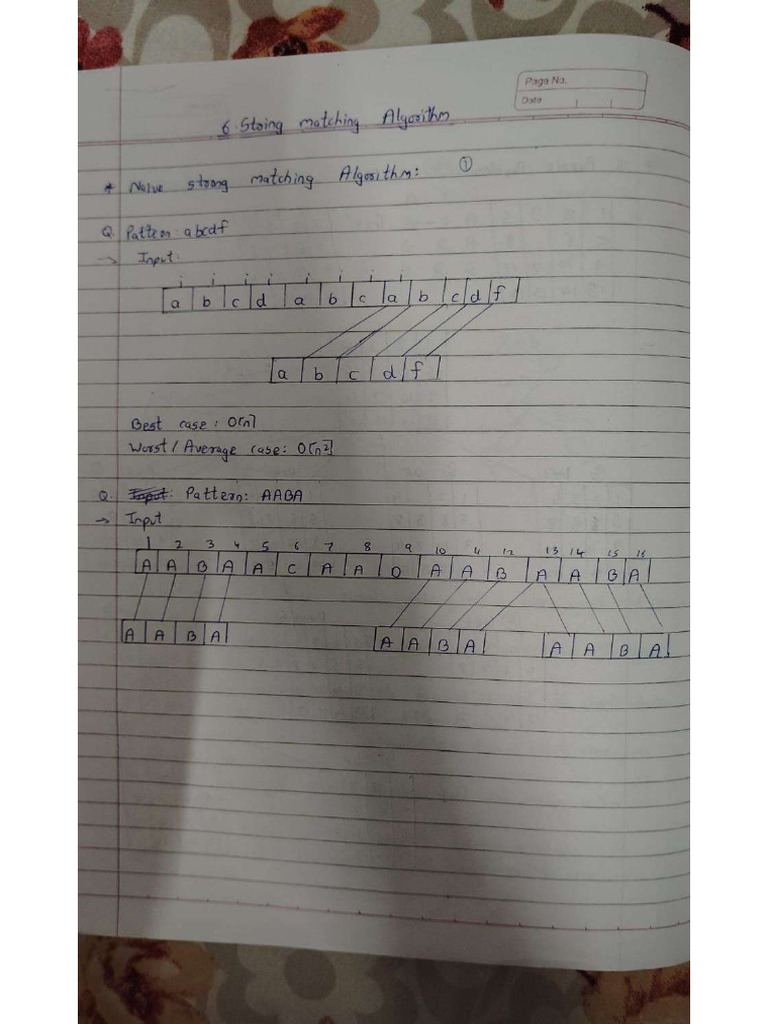 Page No.
Date
6. String matching Algorithm
* Naive string matching Algorithm: ①
Q. Pattern: abcdf
→ Input:
i i i i i i i i
a b c d a b c a b c d f
a b c d f
Best case: O[n]
Worst / Average case: O[n²]
Q. Input: Pattern: AABA
→ Input
1 2 3 4 5 6 7 8 9 10 11 12 13 14 15 16
A A B A A C A A D A A B A A B A
A A B A A A B A A A B A